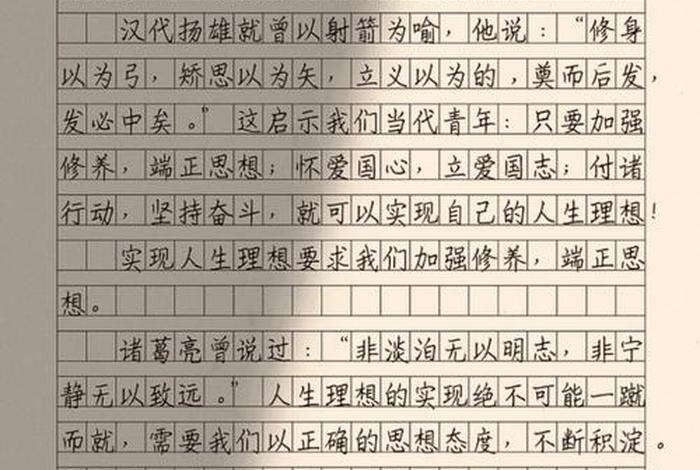 汉代扬雄就曾以射箭为喻，他说：“修身
以为弓，矫思以为矢，立义以为的，奠而后发，
发必中矣。”这启示我们当代青年：只要加强
修养，端正思想；怀爱国心，立爱国志；付诸
行动，坚持奋斗，就可以实现自己的人生理想！
实现人生理想要求我们加强修养，端正思
想。
诸葛亮曾说过：“非淡泊无以明志，非宁
静无以致远。”人生理想的实现绝不可能一蹴
而就，需要我们以正确的思想态度，不断积淀。